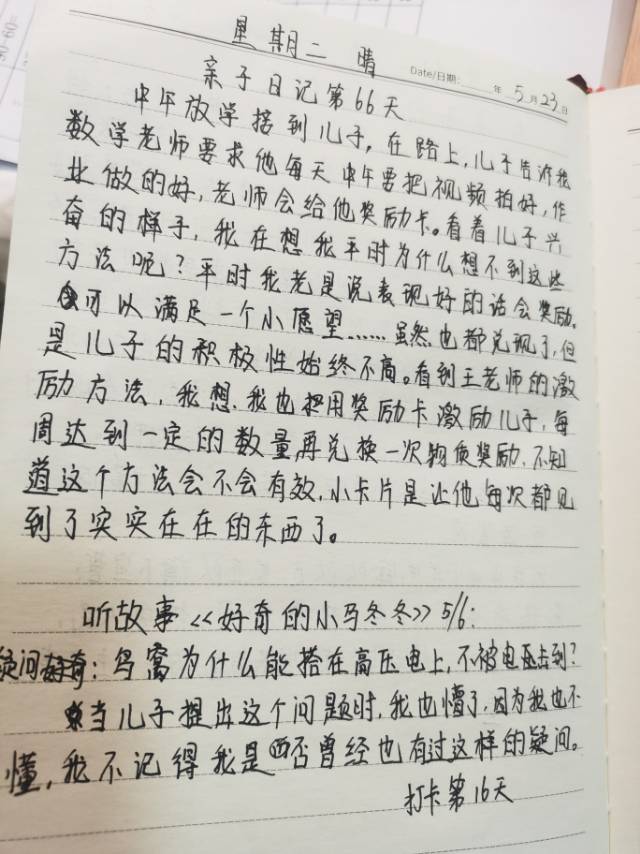 星期二 晴
Date/日期: 年 5月 23日
亲子日记第66天
中午放学接到儿子，在路上，儿子告诉我
数学老师要求他每天中午要把视频拍好，作
业做的好，老师会给他奖励卡。看着儿子兴
奋的样子，我在想我平时为什么想不到这些
方法呢？平时我老是说表现好的话会奖励，
可以满足一个小愿望……虽然也都兑现了，但
是儿子的积极性始终不高。看到王老师的激
励方法，我想，我也把用奖励卡激励儿子，每
周达到一定的数量再兑换一次物质奖励，不知
道这个方法会不会有效，小卡片是让他每次都见
到了实实在在的东西了。
听故事《好奇的小马冬冬》5/6：
疑问好奇：鸟窝为什么能搭在高压电上，不被电压击到？
当儿子提出这个问题时，我也懵了，因为我也不
懂，我不记得我是否曾经也有过这样的疑问。
打卡第16天